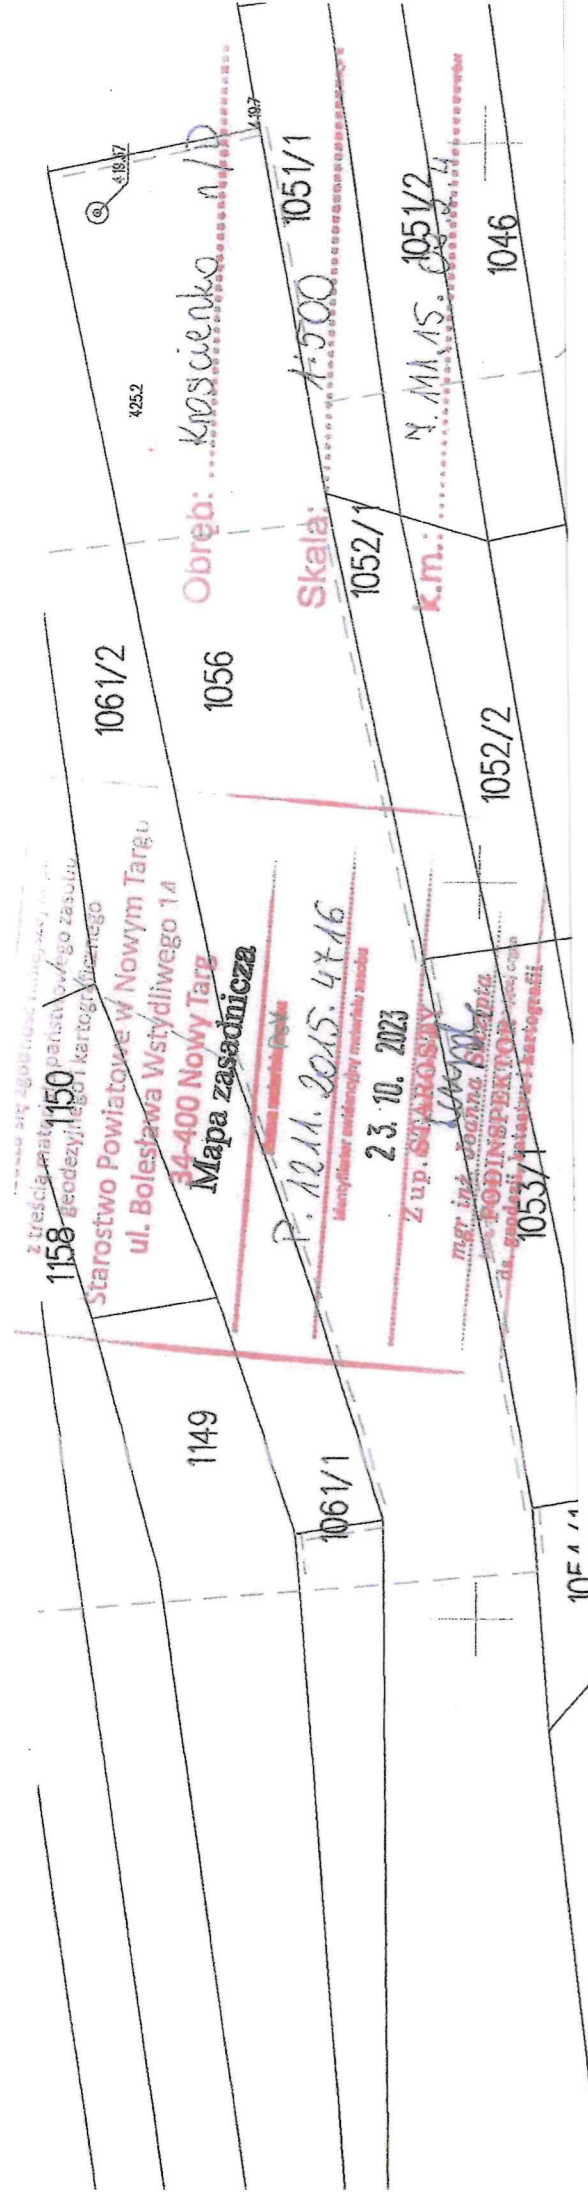 z treścią
państwowego zasobu
geodezyjnego i kartograficznego
Starostwo Powiatowe w Nowym Targu
ul. Bolesława Wstydliwego 14
34-400 Nowy Targ
Mapa zasadnicza
P. 1211. 2015. 4716
Identyfikator ewidencyjny materiału zasobu
23. 10. 2023
Z up. STAROSTY
mgr inż. Joanna
PODINSPEKTOR
ds. geodezji, kartografii
Obręb: Krościenko n/D
Skala: 1:500
k.m.:
1158
1150
1149
1061/1
1061/2
1056
1053/1
1052/1
1052/2
1051/1
1051/2
1046
425.2
419.37
419.7